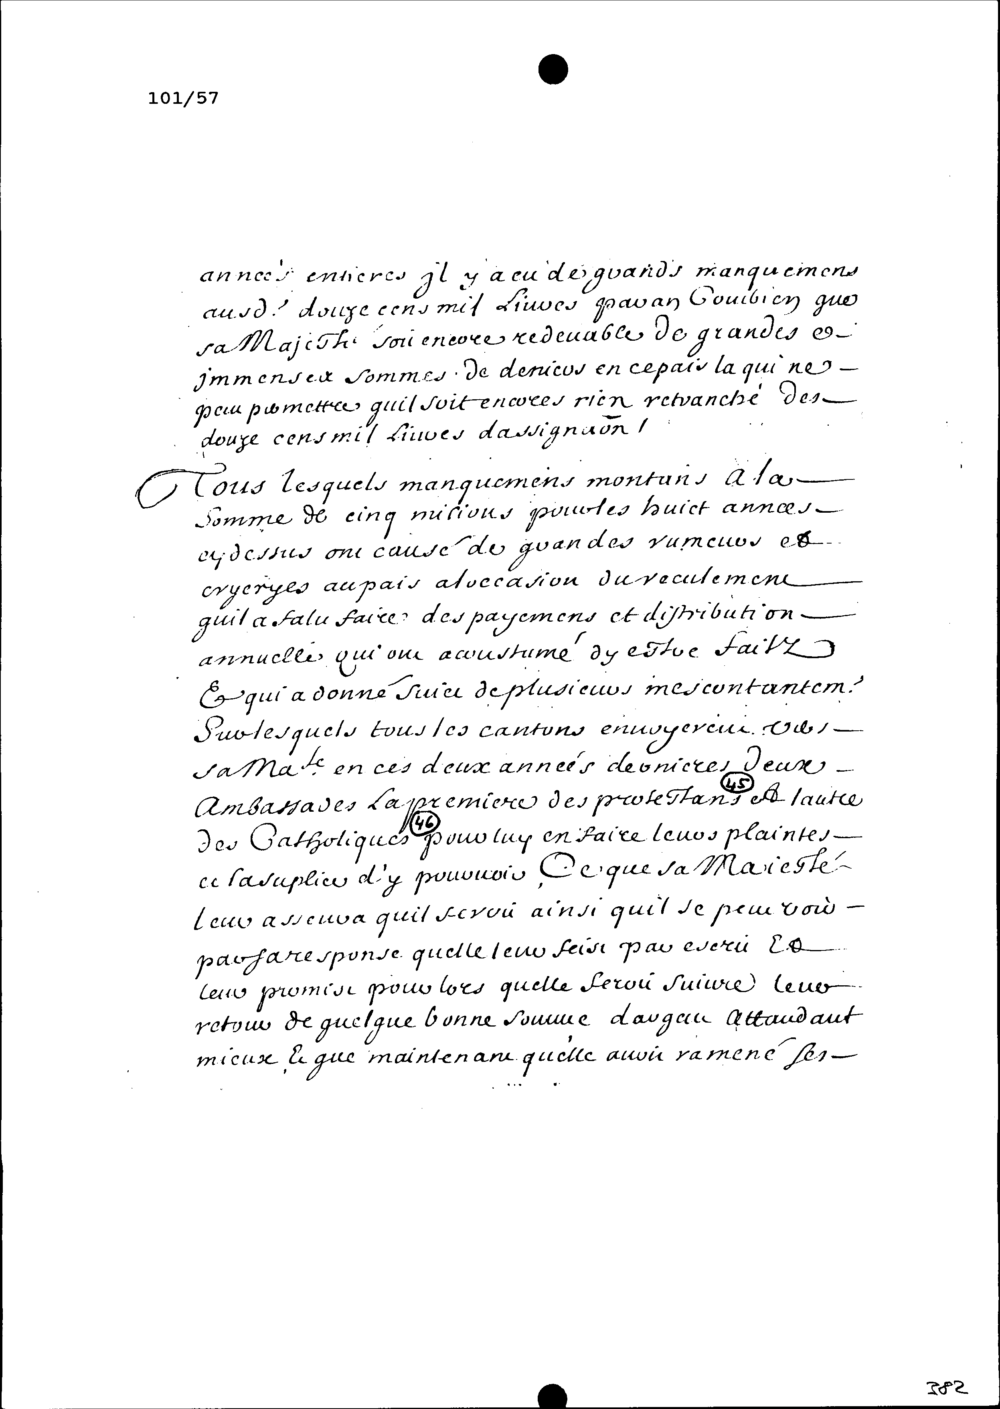 101/57
années entieres jl y a eu de grands manquemens
ausd.s douze cens mil Liures par an Combien que
sa Majesté soit encore redeuable de grandes et
jmmenses sommes de deniers en ce pais la qui ne
peut promettre quil soit encores rien retranché des
douze cens mil Liures dassignaon /
Tous lesquels manquemens montans a la
Somme de cinq milions pour les huict annees
cy dessus ont causé de grandes rumeurs et
cryeryes au pais a loccasion du reculement
quil a falu faire des payemens et distribution
annuelle qui ont acoustumé dy estre faitz
Et qui a donné suict de plusieurs mescontantem.s
Sur lesquels tous les cantons enuoyerent vers
sa Ma.té en ces deux années dernieres Deux
Ambassades La premiere des protestans (45) et lautre
des Catholiques (46) pour luy en faire leurs plaintes
et la suplier d'y pouruoir Ce que sa Maiesté
leur asseura quil seroit ainsi quil se peut voir
par sa response quelle leur feist par escrit Et
leur promist pour lors quelle feroit suiure leur
retour de quelque bonne somme dargent Attandant
mieux Et que maintenant quelle auoit ramené ses
382